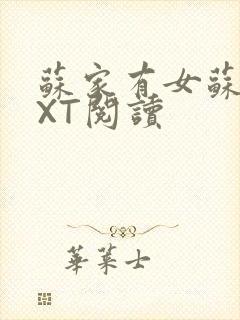 蘇家有女蘇
XT閱讀
華萊士